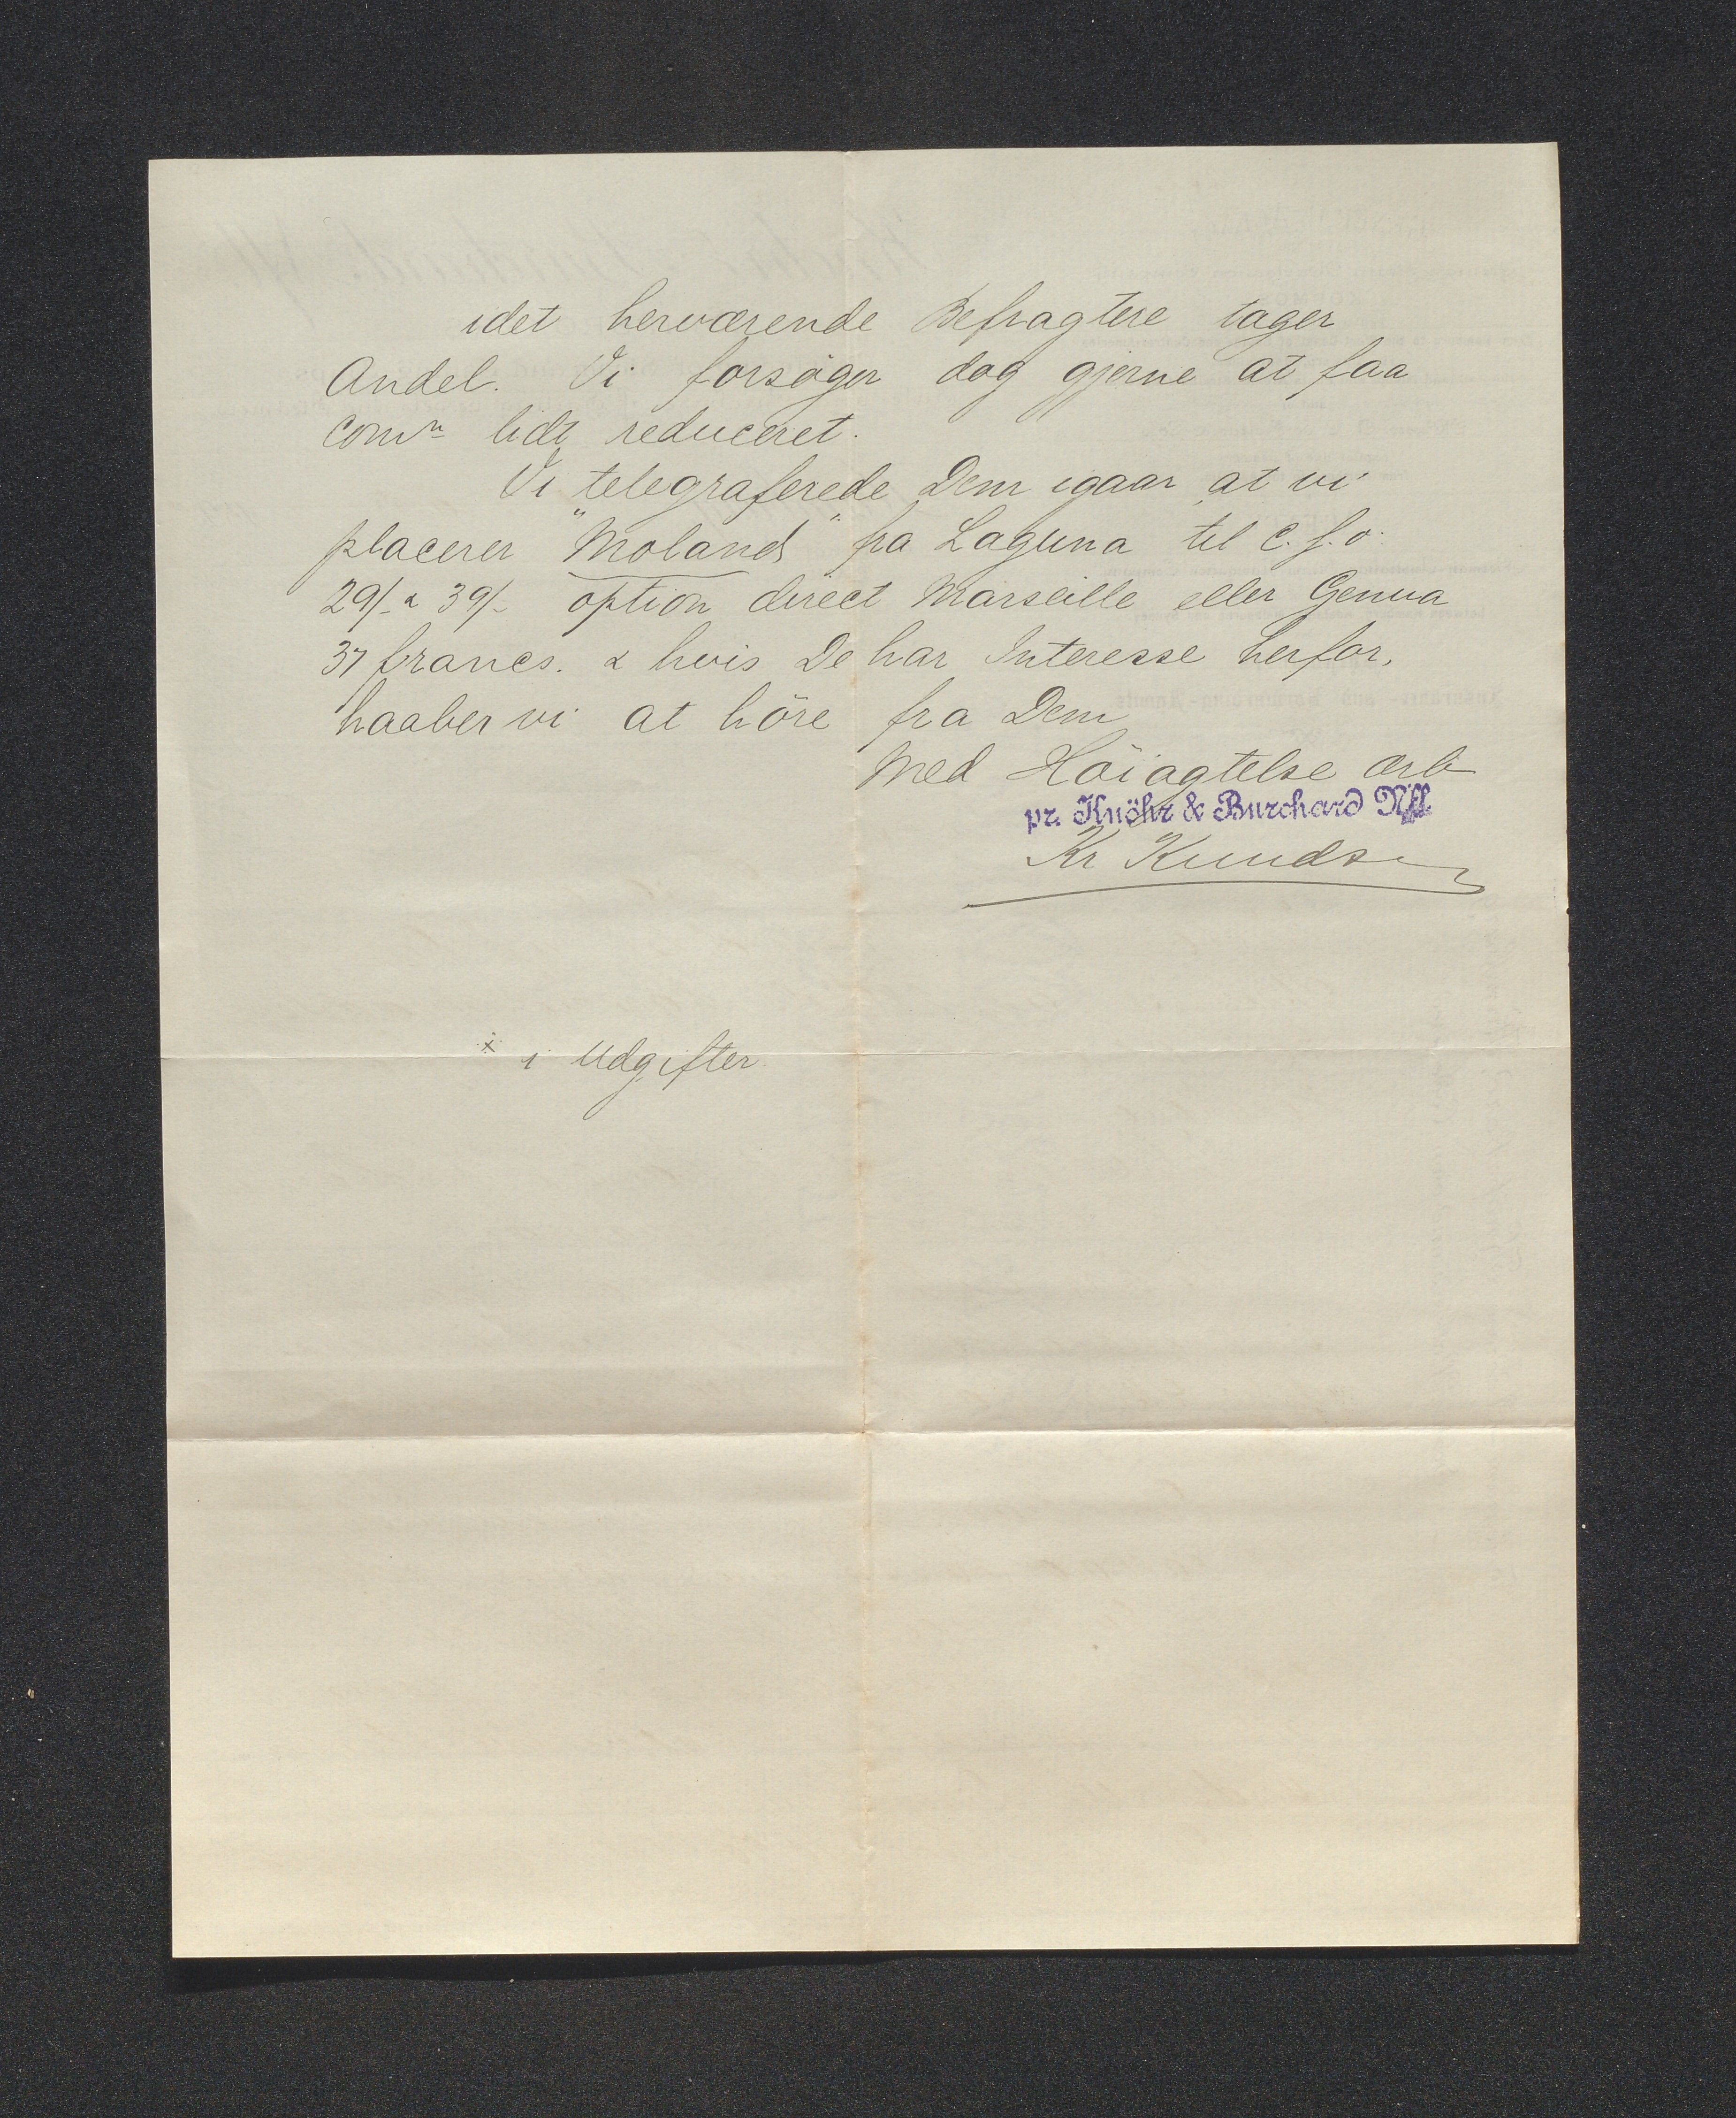 idet herværende Befragtere tager
Andel. Vi forsøger dog gjerne at faa
Comn lidt reduceret.
Vi telegraferede Dem igaar at vi
placerer "Moland" fra Laguna til C. f. o.
29/- & 39/- option direct Marseille eller Genua
37 francs. & hvis De har Interesse herfor,
haaber vi at höre fra Dem
Med Höiagtelse ærb
pr. Knöhr & Burchard Nfl.
Kr Knudsen
× i Udgifter.